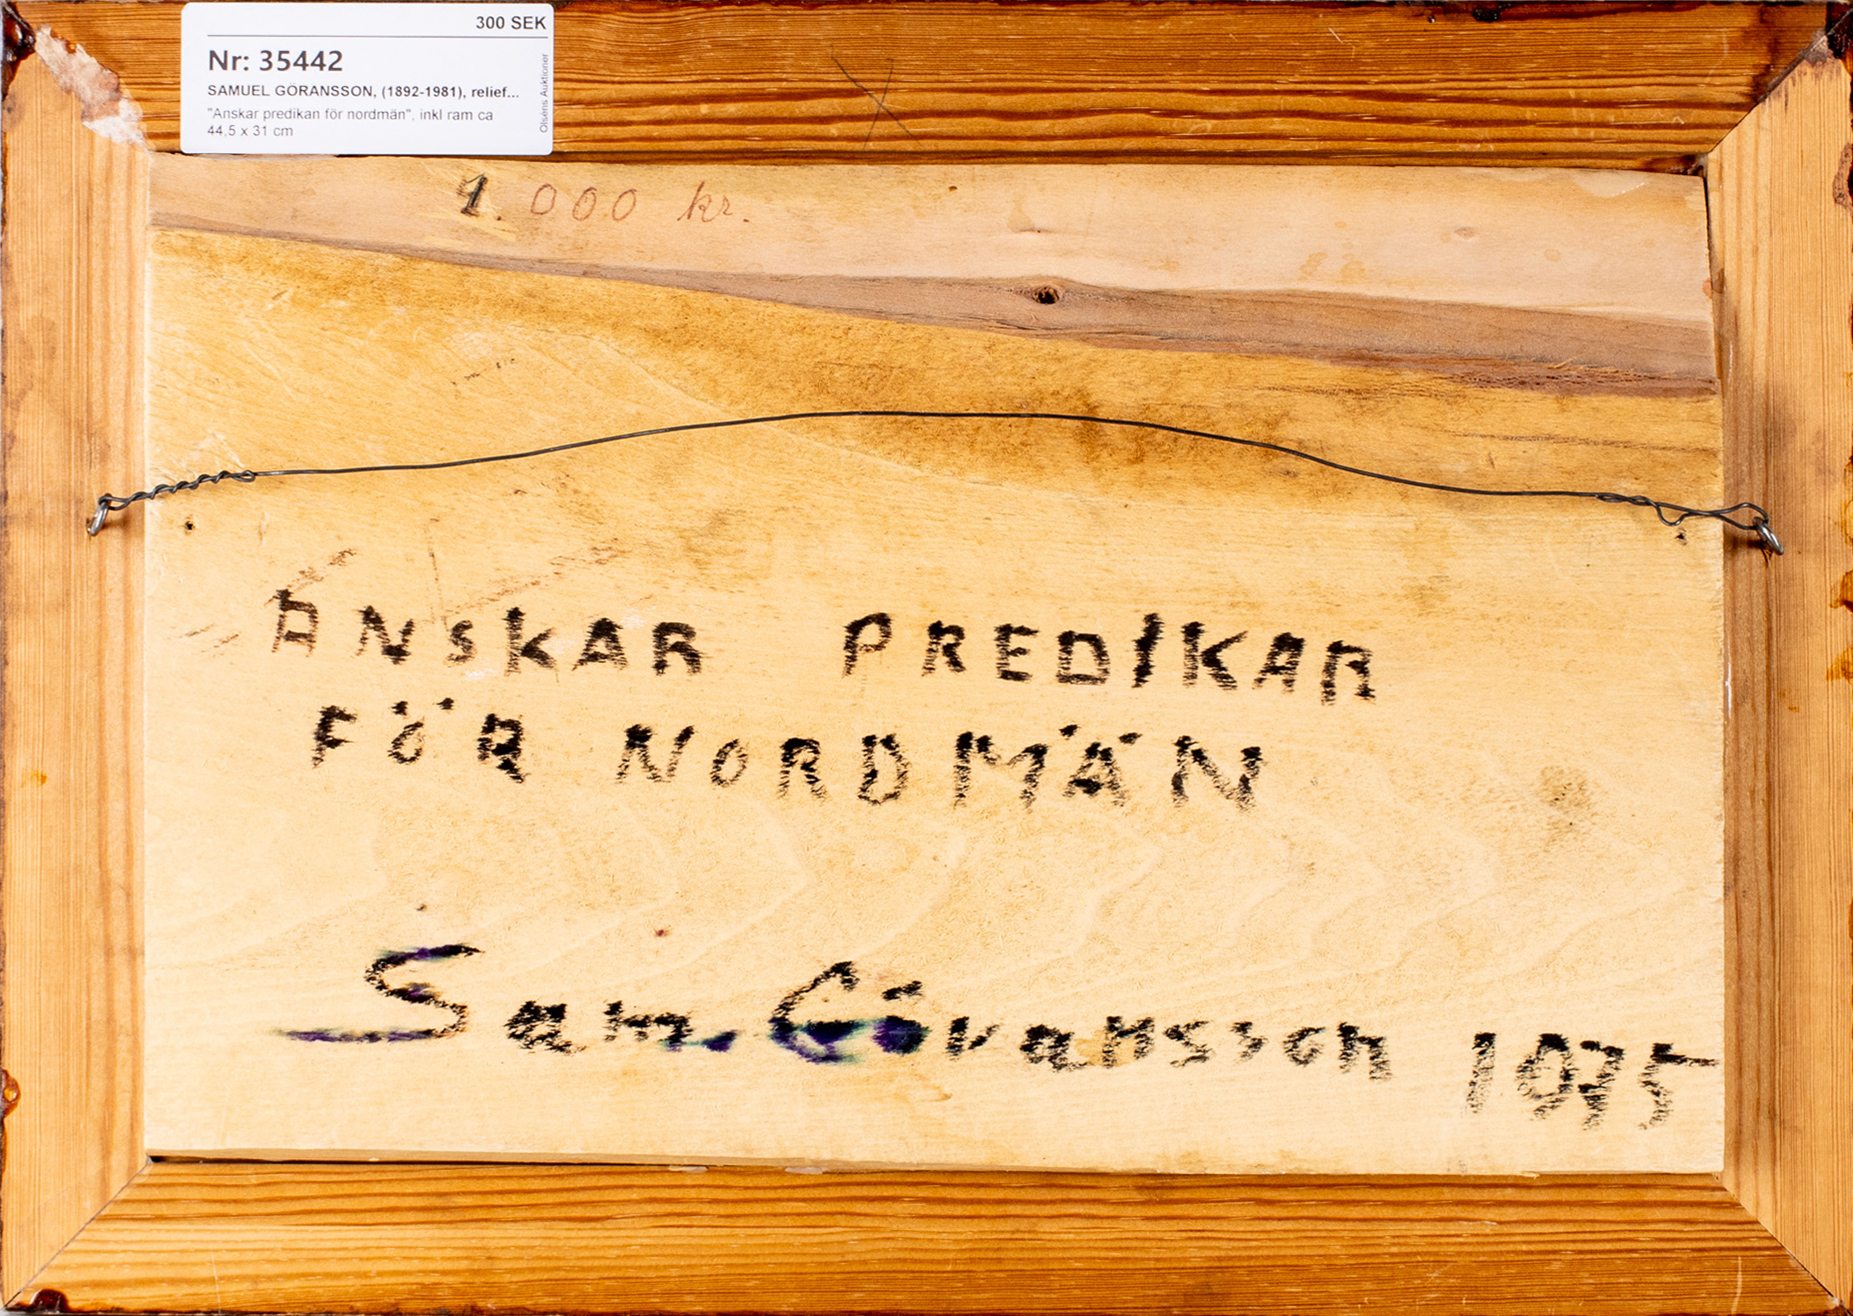 300 SEK
Nr: 35442
SAMUEL GÖRANSSON, (1892-1981), relief...
"Anskar predikan för nordmän", inkl ram ca
44,5 x 31 cm
Olséns Auktioner
1.000 kr.
ANSKAR PREDIKAR
FÖR NORDMÄN
Sam. Göransson 1975